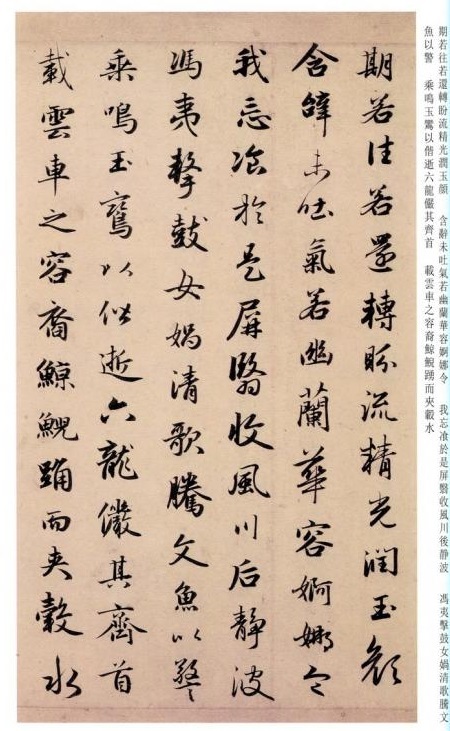 期若往若還轉盼流精光潤玉顏　含辭未吐氣若幽蘭華容婀娜令　我忘飡於是屏翳收風川後静波　馮夷擊鼓女媧清歌騰文
魚以警　乘鳴玉鸞以偕逝六龍儼其齊首　載雲車之容裔鯨鯢踴而夾轂水
期若往若還轉盼流精光潤玉顏
含辭未吐氣若幽蘭華容婀娜令
我忘飡於是屏翳收風川后静波
馮夷擊鼓女媧清歌騰文魚以警
乘鳴玉鸞以偕逝六龍儼其齊首
載雲車之容裔鯨鯢踴而夾轂水